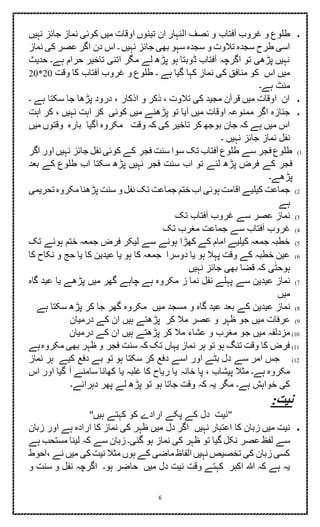 طلوع و غروب آفتاب و نصف النہار ان تینوں اوقات میں کوئی نماز جائز نہیں
اسی طرح سجدہ تلاوت و سجدہ سہو بھی جائز نہیں۔ اس دن اگر عصر کی نماز
نہیں پڑھی تو اگرچہ آفتاب ڈوبتا ہو پڑھ لے مگر اتنی تاخیر حرام ہے۔ حدیث
میں اس کو منافق کی نماز کہا گیا ہے ۔ طلوع و غروب آفتاب کا وقت 20*20
منٹ ہے۔
ان اوقات میں قرآن مجید کی تلاوت ، ذکر و اذکار ، درود پڑھا جا سکتا ہے ۔
جنازہ اگر ممنوعہ اوقات میں آیا تو پڑھنے میں کوئی کر اہت نہیں ، کر اہت
اس میں ہے کہ جان بوجھ کر تاخیر کی کہ وقت مکروہ آگیا بارہ وقتوں میں
نفل نماز جائز نہیں ۔
1) طلوع فجر سے طلوع آفتاب تک سوا سنت فجر کے کوئی نفل جائز نہیں اور اگر
فجر کے فرض پڑھ لئے تو اب سنت فجر نہیں پڑھ سکتا اب طلوع کے بعد
پڑھے۔
2) جماعت کیلیے اقامت ہوئی اب ختم جماعت تک نفل و سنت پڑھنا مکروہ تحریمی
ہے
3) نماز عصر سے غروب آفتاب تک
4) غروب آفتاب سے جماعت مغرب تک
5) خطبہ جمعہ کیلیے امام کے کھڑا ہونے سے لیکر فرض جمعہ ختم ہونے تک
6) عین خطبہ کے وقت پہلا ہو یا دوسرا جمعہ کا ہو یا عیدین کا یا حج و نکاح کا
ہوحتٰی کہ قضا بھی جائز نہیں
7) نماز عیدین سے پہلے نفل نما ز مکروہ ہے چاہے گھر میں پڑھے یا عید گاہ
میں
8) نماز عیدین کے بعد عید گاہ و مسجد میں مکروہ گھر جا کر پڑھ سکتا ہے
9) عرفات میں جو ظہر و عصر ملا کر پڑھتے ہیں ان کے درمیان
10) مزدلفہ میں جو مغرب و عشاء ملا کر پڑھتے ہیں ان کے درمیان
11) فرض کا وقت تنگ ہو تو ہر نماز یہاں تک کہ سنت فجر و ظہر بھی مکروہ ہے
12) جس امر سے دل بٹے اور اسے دفع کر سکتا ہو تو بے دفع کیے ہر نماز
مکروہ ہے۔ مثلا پیشاب ، پا خانہ یا ریاح کا غلبہ یا کھانا سامنے آ گیا اور اس
کی خواہش ہے۔ مگر یہ کہ وقت جاتا ہو تو پڑھ لے پھر دہرائے۔
نیت:
"نیت دل کے پکے ارادے کو کہتے ہیں"
نیت میں زبان کا اعتبار نہیں اگر دل میں ظہر کی نماز کا ارادہ ہے اور زبان
سے لفظ عصر نکل گیا تو ظہر کی نماز ہو گئی۔ زبان سے کہہ لینا مستحب ہے
کسی زبان کی تخصیص نہیں الفاظ ماضی کے ہوں مثلا نیت کی میں نے ،احوط
یہ ہے کہ اللہ اکبر کہتے وقت نیت دل میں حاضر ہو۔ اگرچہ نفل و سنت و
6